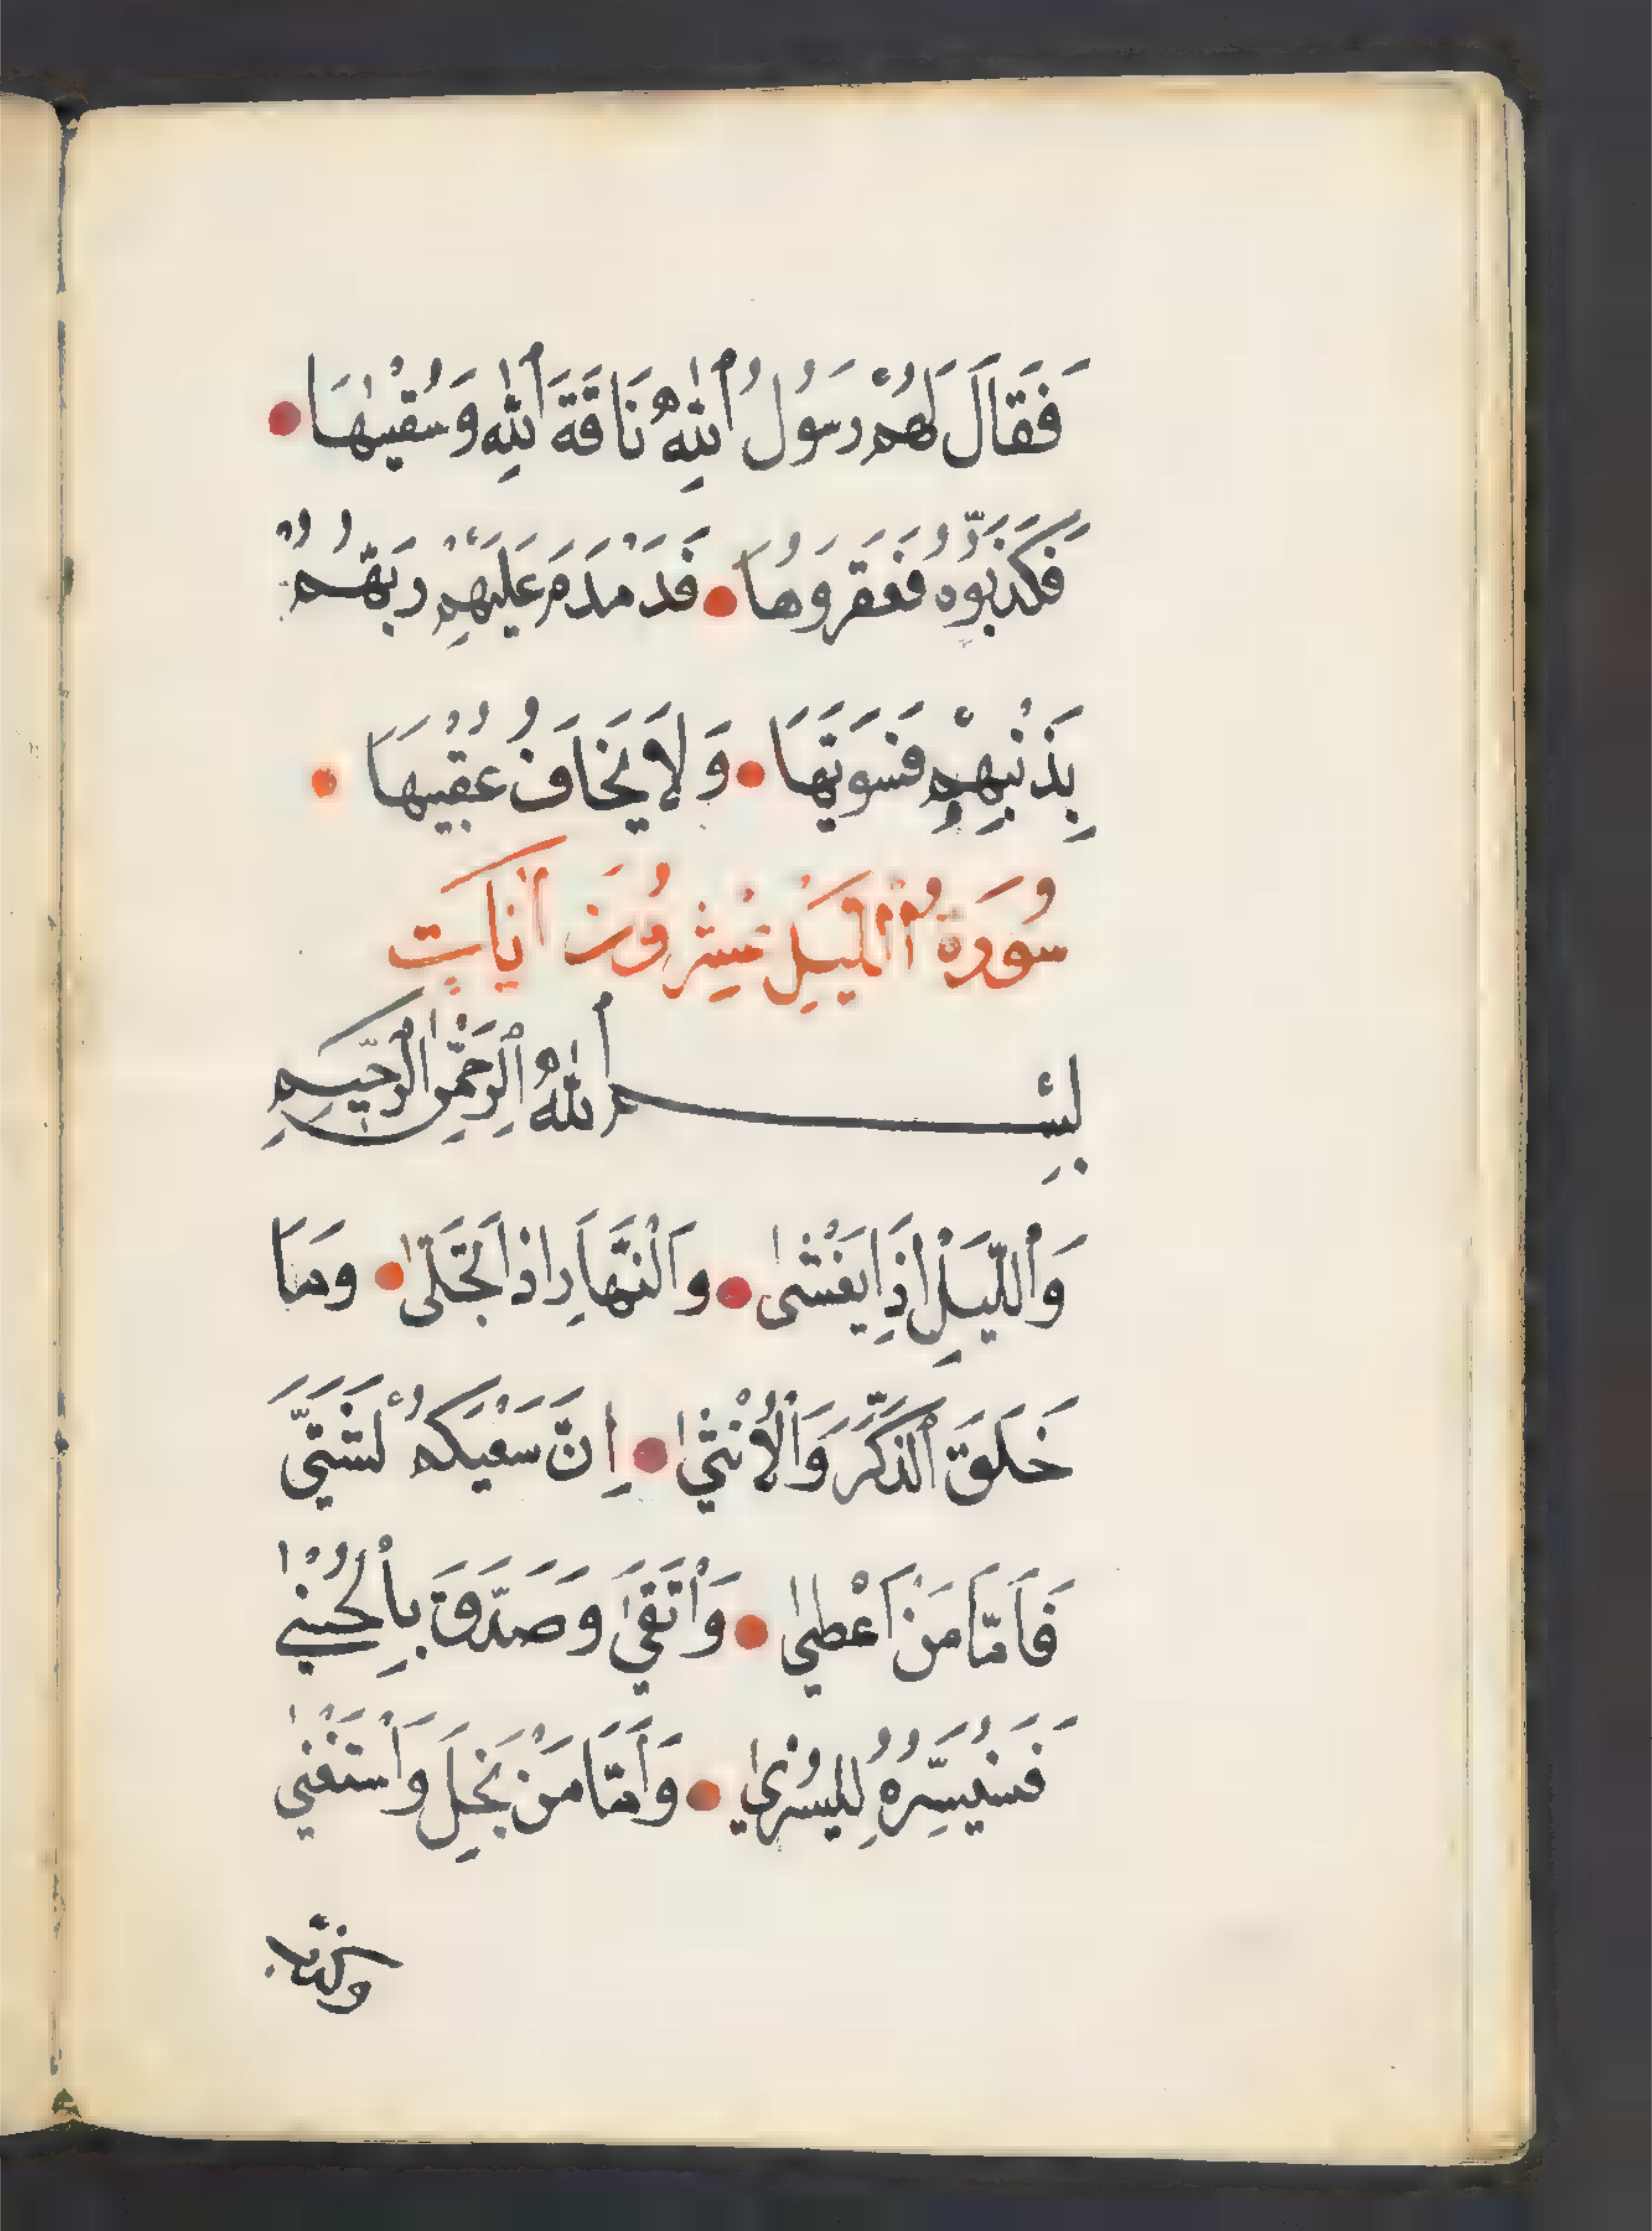 فَقَالَ لَهُمْ رَسُولُ ٱللَّهِ نَاقَةَ ٱللَّهِ وَسُقْيٰهَا
فَكَذَّبُوهُ فَعَقَرُوهَا فَدَمْدَمَ عَلَيْهِمْ رَبُّهُمْ
بِذَنْبِهِمْ فَسَوّٰيهَا وَلَا يَخَافُ عُقْبٰيهَا
سُورَةُ ٱلَّيْلِ عِشْرُونَ اٰيَاتٍ
بِسْمِ ٱللّٰهِ ٱلرَّحْمٰنِ ٱلرَّحِيمِ
وَٱللَّيْلِ إِذَا يَغْشىٰ وَٱلنَّهَارِ إِذَا تَجَلّىٰ وَمَا
خَلَقَ ٱلذَّكَرَ وَٱلْأُنْثيٰ إِنَّ سَعْيَكُمْ لَشَتّيٰ
فَأَمَّا مَنْ أَعْطيٰ وَٱتَّقيٰ وَصَدَّقَ بِٱلْحُسْنيٰ
فَسَنُيَسِّرُهُ لِلْيُسْريٰ وَأَمَّا مَنْ بَخِلَ وَٱسْتَغْنيٰ
وكذب